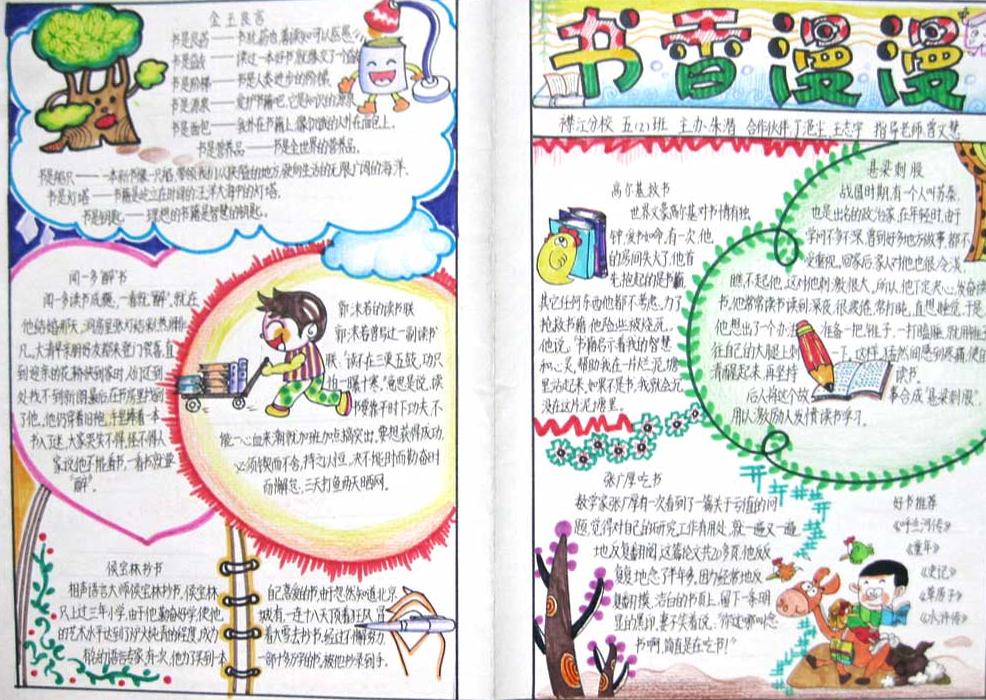 金玉良言
书是良药——书犹药也,善读之可以医愚。
书是益友——读过一本好书,就像交了个益友
书是阶梯——书是人类进步的阶梯。
书是源泉——爱护书籍吧,它是知识的源泉
书是面包——我扑在书籍上,像饥饿的人扑在面包上。
书是营养品——书是全世界的营养品。
书是船只——一本新书像一只船,带领我们从狭隘的地方驶向生活的无限广阔的海洋。
书是灯塔——书籍是屹立在时间的汪洋大海中的灯塔。
书是钥匙——理想的书籍是智慧的钥匙。
闻一多"醉"书
闻一多读书成瘾,一看就"醉",就在
他结婚那天,洞房里张灯结彩,热闹非
凡。大清早亲朋好友都来登门贺喜,直
到迎亲的花轿快到家时,人们还到
处找不到新郎。最后在书房里找到
了他。他仍穿着旧袍,手里捧着一本
书入了迷,大家哭笑不得,怪不得人
家说他不能看书,一看书就要
"醉"。
郭沫若的读书联
郭沫若曾写过一副读书
联:"读不在三更五鼓,功只
怕一曝十寒。"意思是说,读
书要靠平时下功夫,不
能一心血来潮就加班加点搞突出,要想获得成功,
必须锲而不舍,持之以恒。决不能时而勤奋时
而懈怠,三天打鱼两天晒网。
侯宝林抄书
相声语言大师侯宝林抄书,侯宝林
只上过三年小学,由于他勤奋好学,使他
的艺术水平达到了炉火纯青的程度,成为
有名的语言专家。有一次,他为了买到一本
自己喜爱的书
城
着大雪去抄书,经过
一部十多万字的书,被他抄录到手。
书香漫漫
襟江分校 五(2)班 主办:朱潜 合作伙伴:丁沧尘 王志宇 指导老师:曹文慧
高尔基救书
世界文豪高尔基对书情有独
钟,爱书如命,有一次,他
的房间失火了,他首
先抱起的是书籍,
其它任何东西他都不考虑,为了
抢救书籍,他险些被烧死。
他说:"书籍启示着我的智慧
和心灵,帮助我在一片烂泥塘
里站起来,如果不是书,我就会沉
没在这片泥塘里。
悬梁刺股
战国时期,有一个人叫苏秦,
也是出名的政治家,在年轻时,由于
学问不多不深,曾到好多地方做事,都不
受重视,回家后,家人对他也很冷淡,
瞧不起他,这对他刺激很大,所以,他下定决心,发奋读
书,他常常读书读到深夜,很疲倦,常打盹,直想睡觉,于是
他想出了一个办法,准备一把锥子,一打瞌睡,就用锥子
往自己的大腿上刺一下,这样,猛然间感到疼痛,使自
清醒起来,再坚持读书。
后人将这个故事合成"悬梁刺股",
用以激励人发愤读书学习。
张广厚吃书
数学家张广厚有一次看到了一篇关于亏值的问
题,觉得对自己的研究工作有用处,就一遍又一遍
地反复翻阅,这篇论文共20多页,他反反
复复地念了半年多,因为经常地反
复翻摸,洁白的书页上,留下一条明
显的黑印,妻子笑着说:"你这哪叫念
书啊,简直是在吃书!"
好书推荐
《呼兰河传》
《童年》
《史记》
《草房子》
《水浒传》